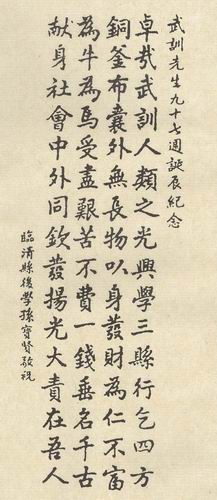 武訓先生九十七週誕辰紀念
卓哉武訓人類之光興學三縣行乞四方
銅釜布囊外無長物以身發財為仁不富
為牛為馬受盡艱苦不費一錢垂名千古
献身社會中外同欽發揚光大責在吾人
臨清縣後學孫寶賢敬祝